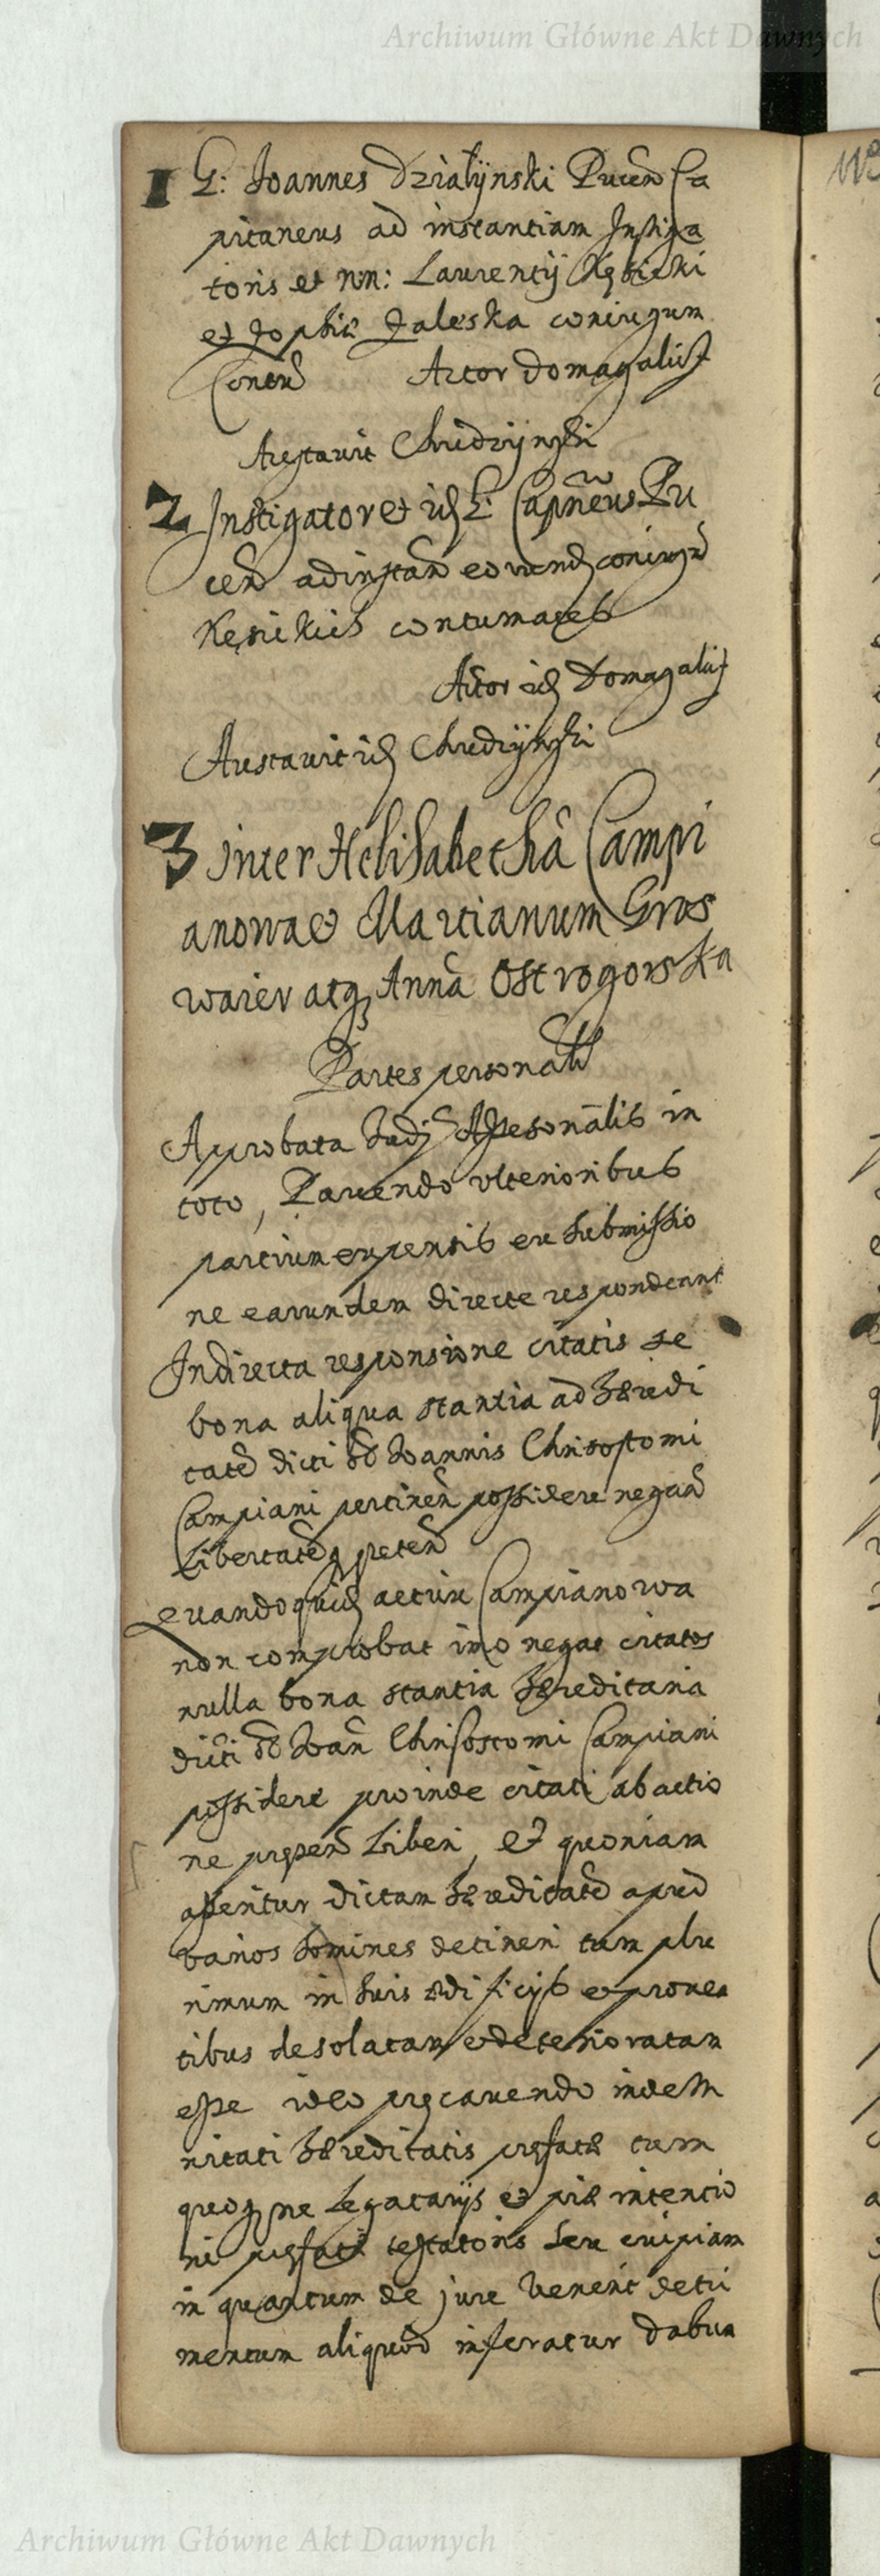 Archiwum Główne Akt Dawnych
1 G: Joannes Działÿnski Pucen Ca
pitaneus ad instantiam Instiga
toris et nn: Laurentij
et Zophiæ Zaleska coniugum
Conten Actor Domagalius
Arestavit Chudzijnski
2 Instigatoret id G: Capneus Pu
cen ad instan eorund coniugu
contumaces
Actor id Domagalius
Arestavit id Chudzijnski
3 inter Helisabethã Campi
anowa et Martianum Gros
waier atq Annã Ostrogorska
Partes personalr
Aprobata Judij Assesorialis in
toto, Parcendo ulterioribus
partium expensis ex submissio
ne earundem directe respondeant
Indirecta responsione citatis se
bona aliqua stantia ad hæredi
tate dicti od Joannis Chrisostomi
Campiani pertinen possidere negan
Libertateq peten
quandoquid actrix Campianowa
non comprobat imo negat citatos
nulla bona stantia hæreditaria
dicti od Joan Chrisostomi Campiani
possidere proinde citati ab actio
ne præsen Liberi, et quoniam
asseritur dictam hæreditate apud
varios homines detineri tum plu
rimum in suis ædificijs et proven
tibus desolatam et deterioratam
esse ideo præcavendo indem
nitati hæreditatis præfatæ tum
quoq ne Legatarijs et piæ intentio
ni præfati testatoris seu
in quantum de jure venerit detri
mentum aliquod inferatur dabun
Archiwum Główne Akt Dawnych